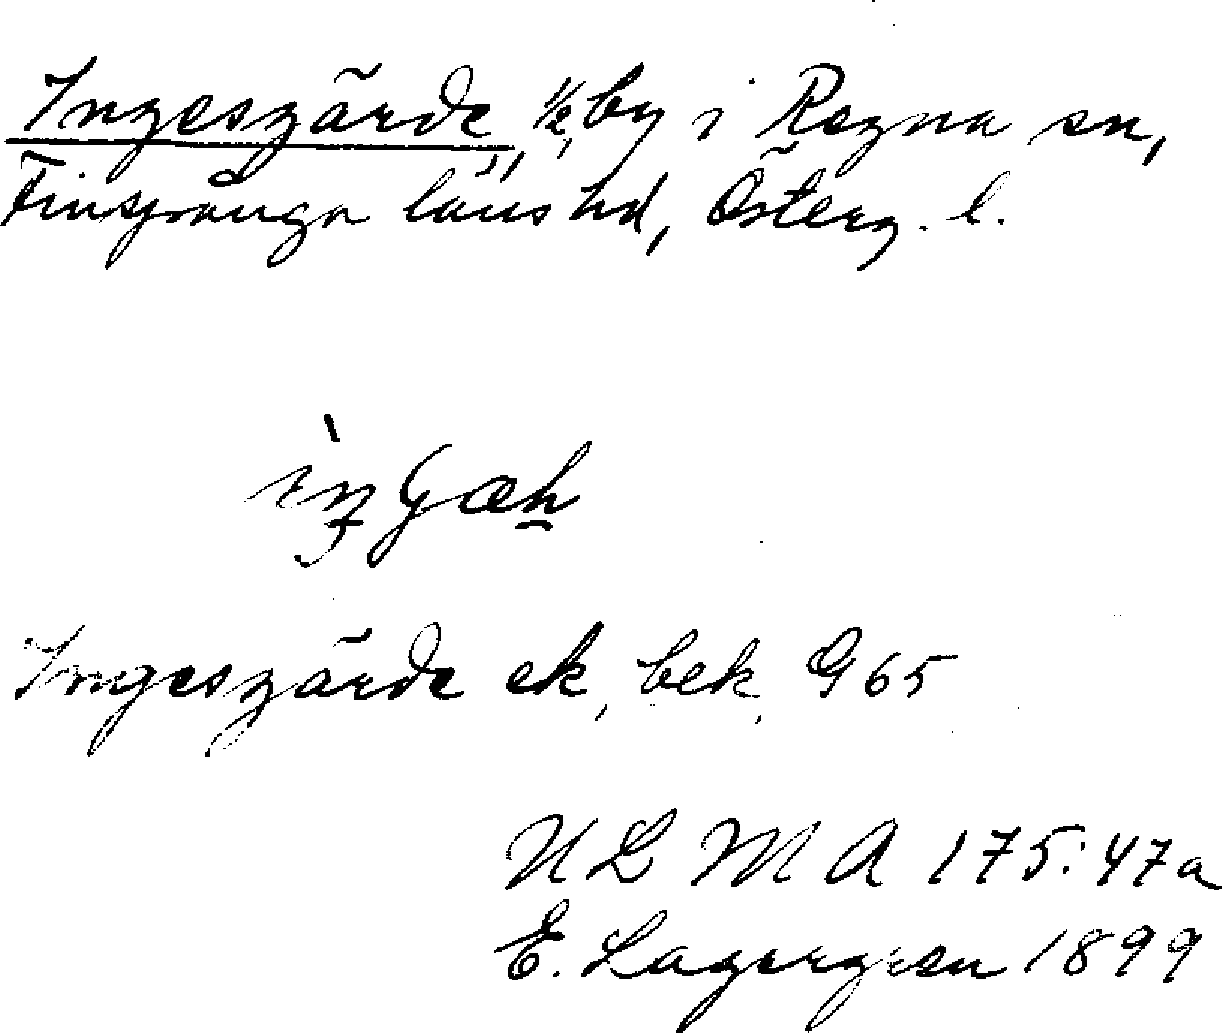 Ingesgärde, 1/2, by i Regna sn,
Finspånga läns hd, Österg. l.
Ingesgärde ek, bek, G 65
ULMA 175:47a
E. Lagergren 1899